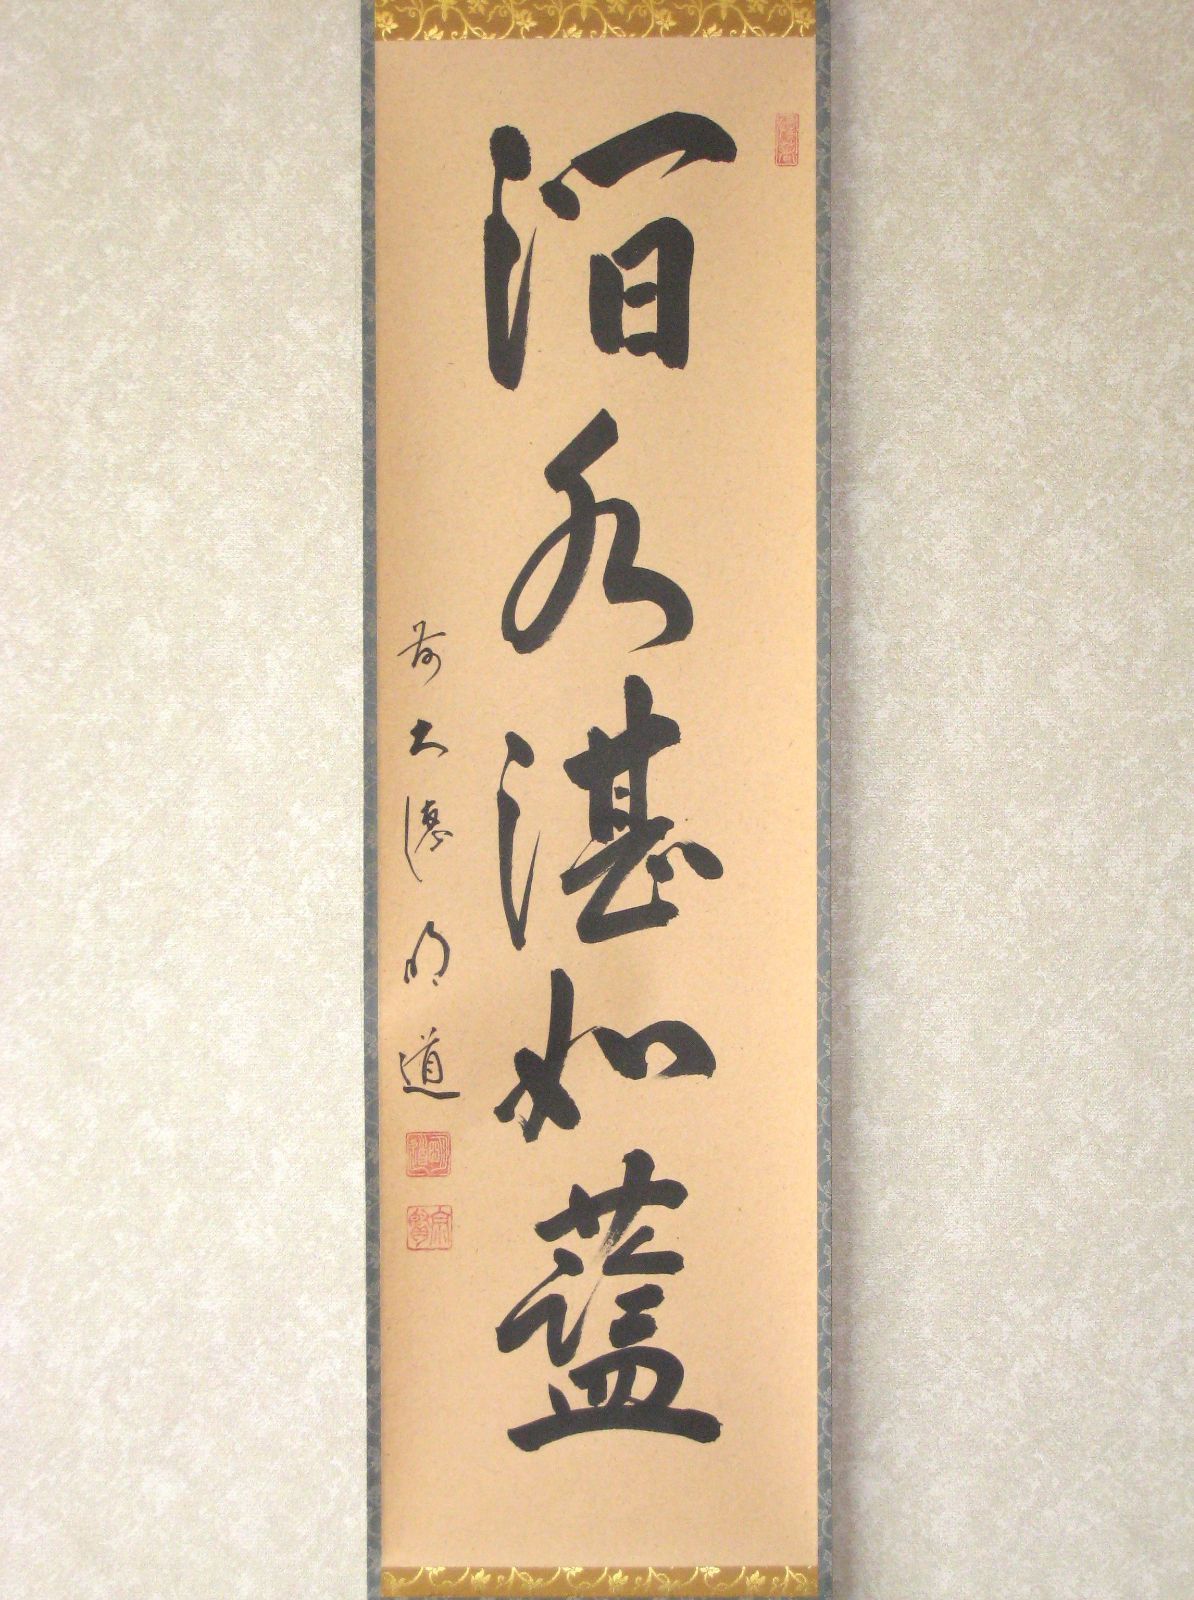 澗水湛如藍
前大徳明道